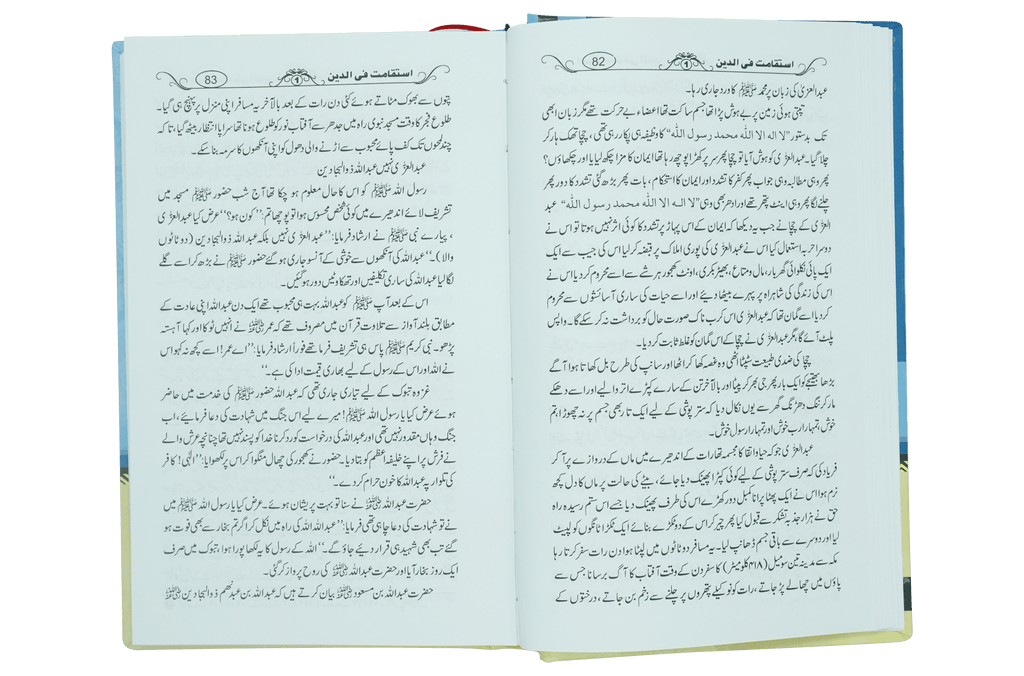 استقامت فی الدین 1 82
عبدالعزیٰ کی زبان پر محمد ﷺ کا ورد جاری رہا۔
تپتی ہوئی زمین پر بے ہوش پڑا تھا جسم ساکت تھا اعضاء بے حرکت تھے مگر زبان ابھی
تک بدستور ”لا الہ الا اللہ محمد رسول اللہ“ کا وظیفہ ہی پکار رہی تھی، چچا تھک ہار کر
چلا گیا۔ عبدالعزیٰ کو ہوش آیا تو چچا پھر سر پر کھڑا پوچھ رہا تھا ایمان کا مزا چکھ لیا یا اور چکھاؤں؟
پھر وہی مطالبہ وہی جواب پھر کفر کا تشدد اور ایمان کا استحکام، بات پھر بڑھ گئی تشدد کا دور پھر
چلنے لگا پھر وہی اینٹ پتھر تھے اور ادھر بھی وہی ”لا الہ الا اللہ محمد رسول اللہ“ عبد
العزیٰ کے چچا نے جب یہ دیکھا کہ ایمان کے اس پہاڑ پر تشدد کا کوئی اثر نہیں ہوتا تو اس نے
دوسرا حربہ استعمال کیا اس نے عبدالعزیٰ کی پوری املاک پر قبضہ کر لیا اس کی جیب سے ایک
ایک پائی نکلوائی گھر بار، مال و متاع، بھیڑ بکری، اونٹ کھجور ہر شے سے اسے محروم کر دیا اس نے
اس کی زندگی کی شاہراہ پر پہرے بیٹھا دیئے اور اسے حیات کی ساری آسائشوں سے محروم
کر دیا اسے گمان تھا کہ عبدالعزیٰ اس کرب ناک صورت حال کو برداشت نہ کر سکے گا۔ واپس
پلٹ آئے گا، مگر عبدالعزیٰ نے چچا کے اس گمان کو غلط ثابت کر دیا۔
چچا کی ضدی طبیعت سٹپٹا اٹھی وہ غصہ کھا کر اٹھا اور سانپ کی طرح بل کھاتا ہوا آگے
بڑھا بھتیجے کو ایک بار پھر جی بھر کر پیٹا اور بالآخر تن کے سارے کپڑے اتر والیے اور اسے دھکے
مار کر ننگ دھڑنگ گھر سے یوں نکال دیا کہ ستر پوشی کے لیے ایک تار بھی جسم پر نہ چھوڑا، ہم
خوش، تمہارا رب خوش اور تمہارا رسول خوش۔
عبدالعزیٰ جو کہ حیا و اتقا کا مجسمہ تھا رات کے اندھیرے میں ماں کے دروازے پر آ کر
فریاد کی کہ صرف ستر پوشی کے لیے کوئی کپڑا پھینک دیا جائے، بیٹے کی حالت پر ماں کا دل کچھ
نرم ہوا اس نے ایک پھٹا پرانا کمبل دور کھڑے اس کی طرف پھینک دیا جسے اس ستم رسیدہ راہ
حق نے ہزار جذبہ تشکر سے قبول کیا پھر چیر کر اس کے دو ٹکڑے بنائے ایک ٹکڑا ٹانگوں کو لپیٹ
لیا اور دوسرے سے باقی جسم ڈھانپ لیا۔ یہ مسافر دو ٹاٹوں میں لپٹا ہوا دن رات سفر کرتا رہا
مکہ سے مدینہ تین سو میل (۴۱۸ کلومیٹر) کا سفر دن کے وقت آفتاب کا آگ برسانا جس سے
پاؤں میں چھالے پڑ جاتے، رات کو نوکیلے پتھروں پر چلنے سے زخم بن جاتے، درختوں کے
استقامت فی الدین 1 83
پتوں سے بھوک مٹاتے ہوئے کئی دن رات کے بعد بالآخر یہ مسافر اپنی منزل پر پہنچ ہی گیا۔
طلوع فجر کا وقت مسجد نبوی راہ میں جدھر سے آفتاب نور کو طلوع ہونا تھا سراپا انتظار بیٹھ گیا، تا کہ
چند لمحوں تک کف پائے محبوب سے اڑنے والی دھول کو اپنی آنکھوں کا سرمہ بنا سکے۔
عبدالعزیٰ نہیں عبداللہ ذوالبجادین
رسول اللہ ﷺ کو اس کا حال معلوم ہو چکا تھا آج شب حضور ﷺ مسجد میں
تشریف لائے اندھیرے میں کوئی شخص محسوس ہوا تو پوچھا تم: ”کون ہو؟“ عرض کیا عبدالعزیٰ
، پیارے نبی ﷺ نے ارشاد فرمایا: ”عبدالعزیٰ نہیں بلکہ عبداللہ ذوالبجادین (دو ٹاٹوں
والا)۔“ عبداللہ کی آنکھوں سے خوشی کے آنسو جاری ہو گئے حضور ﷺ نے بڑھ کر اسے گلے
لگا لیا عبداللہ کی ساری تکلیفیں اور تھکاوٹیں دور ہو گئیں۔
اس کے بعد آپ ﷺ کو عبداللہ بہت ہی محبوب تھے ایک دن عبداللہ اپنی عادت کے
مطابق بلند آواز سے تلاوت قرآن میں مصروف تھے کہ عمر رضی اللہ عنہ نے انہیں ٹوکا اور کہا آہستہ
پڑھو۔ نبی کریم ﷺ پاس ہی تشریف فرما تھے فوراً ارشاد فرمایا: ”اے عمر! اسے کچھ نہ کہو اس
نے اللہ اور اس کے رسول کے لیے بھاری قیمت ادا کی ہے۔“
غزوہ تبوک کے لیے تیاری جاری تھی کہ عبداللہ حضور ﷺ کی خدمت میں حاضر
ہوئے عرض کیا یا رسول اللہ ﷺ! میرے لیے اس جنگ میں شہادت کی دعا فرمائیے، اب
جنگ وہاں مقدور نہیں تھی اور عبداللہ کی درخواست کو رد کرنا خدا کو پسند نہیں تھا چنانچہ عرش والے
نے فرش پر اپنے خلیفہ اعظم کو بتا دیا۔ حضور نے کھجور کی چھال منگوا کر اس پر لکھوایا: ”الٰہی! کافر
کی تلوار پہ عبداللہ کا خون حرام کر دے۔“
حضرت عبداللہ رضی اللہ عنہ نے سنا تو بہت پریشان ہوئے۔ عرض کیا یا رسول اللہ ﷺ میں
نے تو شہادت کی دعا چاہی تھی فرمایا: ”عبداللہ اللہ کی راہ میں نکل کر اگر تم بخار سے بھی فوت ہو
گئے تب بھی شہید ہی قرار دیئے جاؤ گے۔“ اللہ کے رسول کا یہ لکھا پورا ہوا، تبوک میں صرف
ایک روز بخار آیا اور حضرت عبداللہ رضی اللہ عنہ کی روح پرواز کر گئی۔
حضرت عبداللہ بن مسعود رضی اللہ عنہ بیان کرتے ہیں کہ عبداللہ بن عبد نھم ذوالبجادین رضی اللہ عنہ